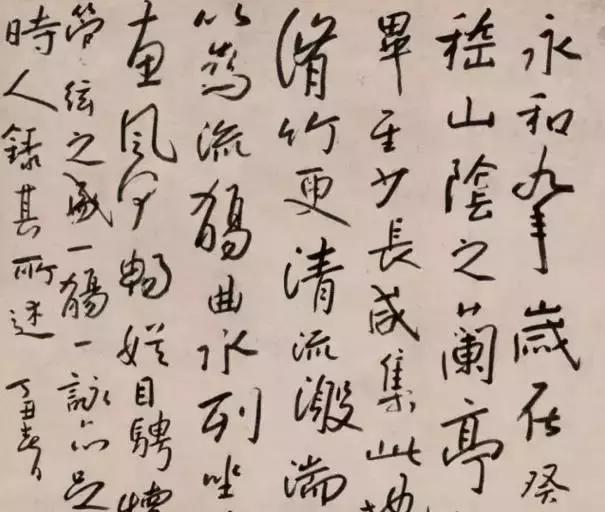 永和九年歲在癸
稽山陰之蘭亭
畢至少長咸集此地
脩竹更清流激湍
以為流觴曲水列坐
惠風和暢娛目騁懷
管絃之盛一觴一詠亦足
時人錄其所述 丁丑春日